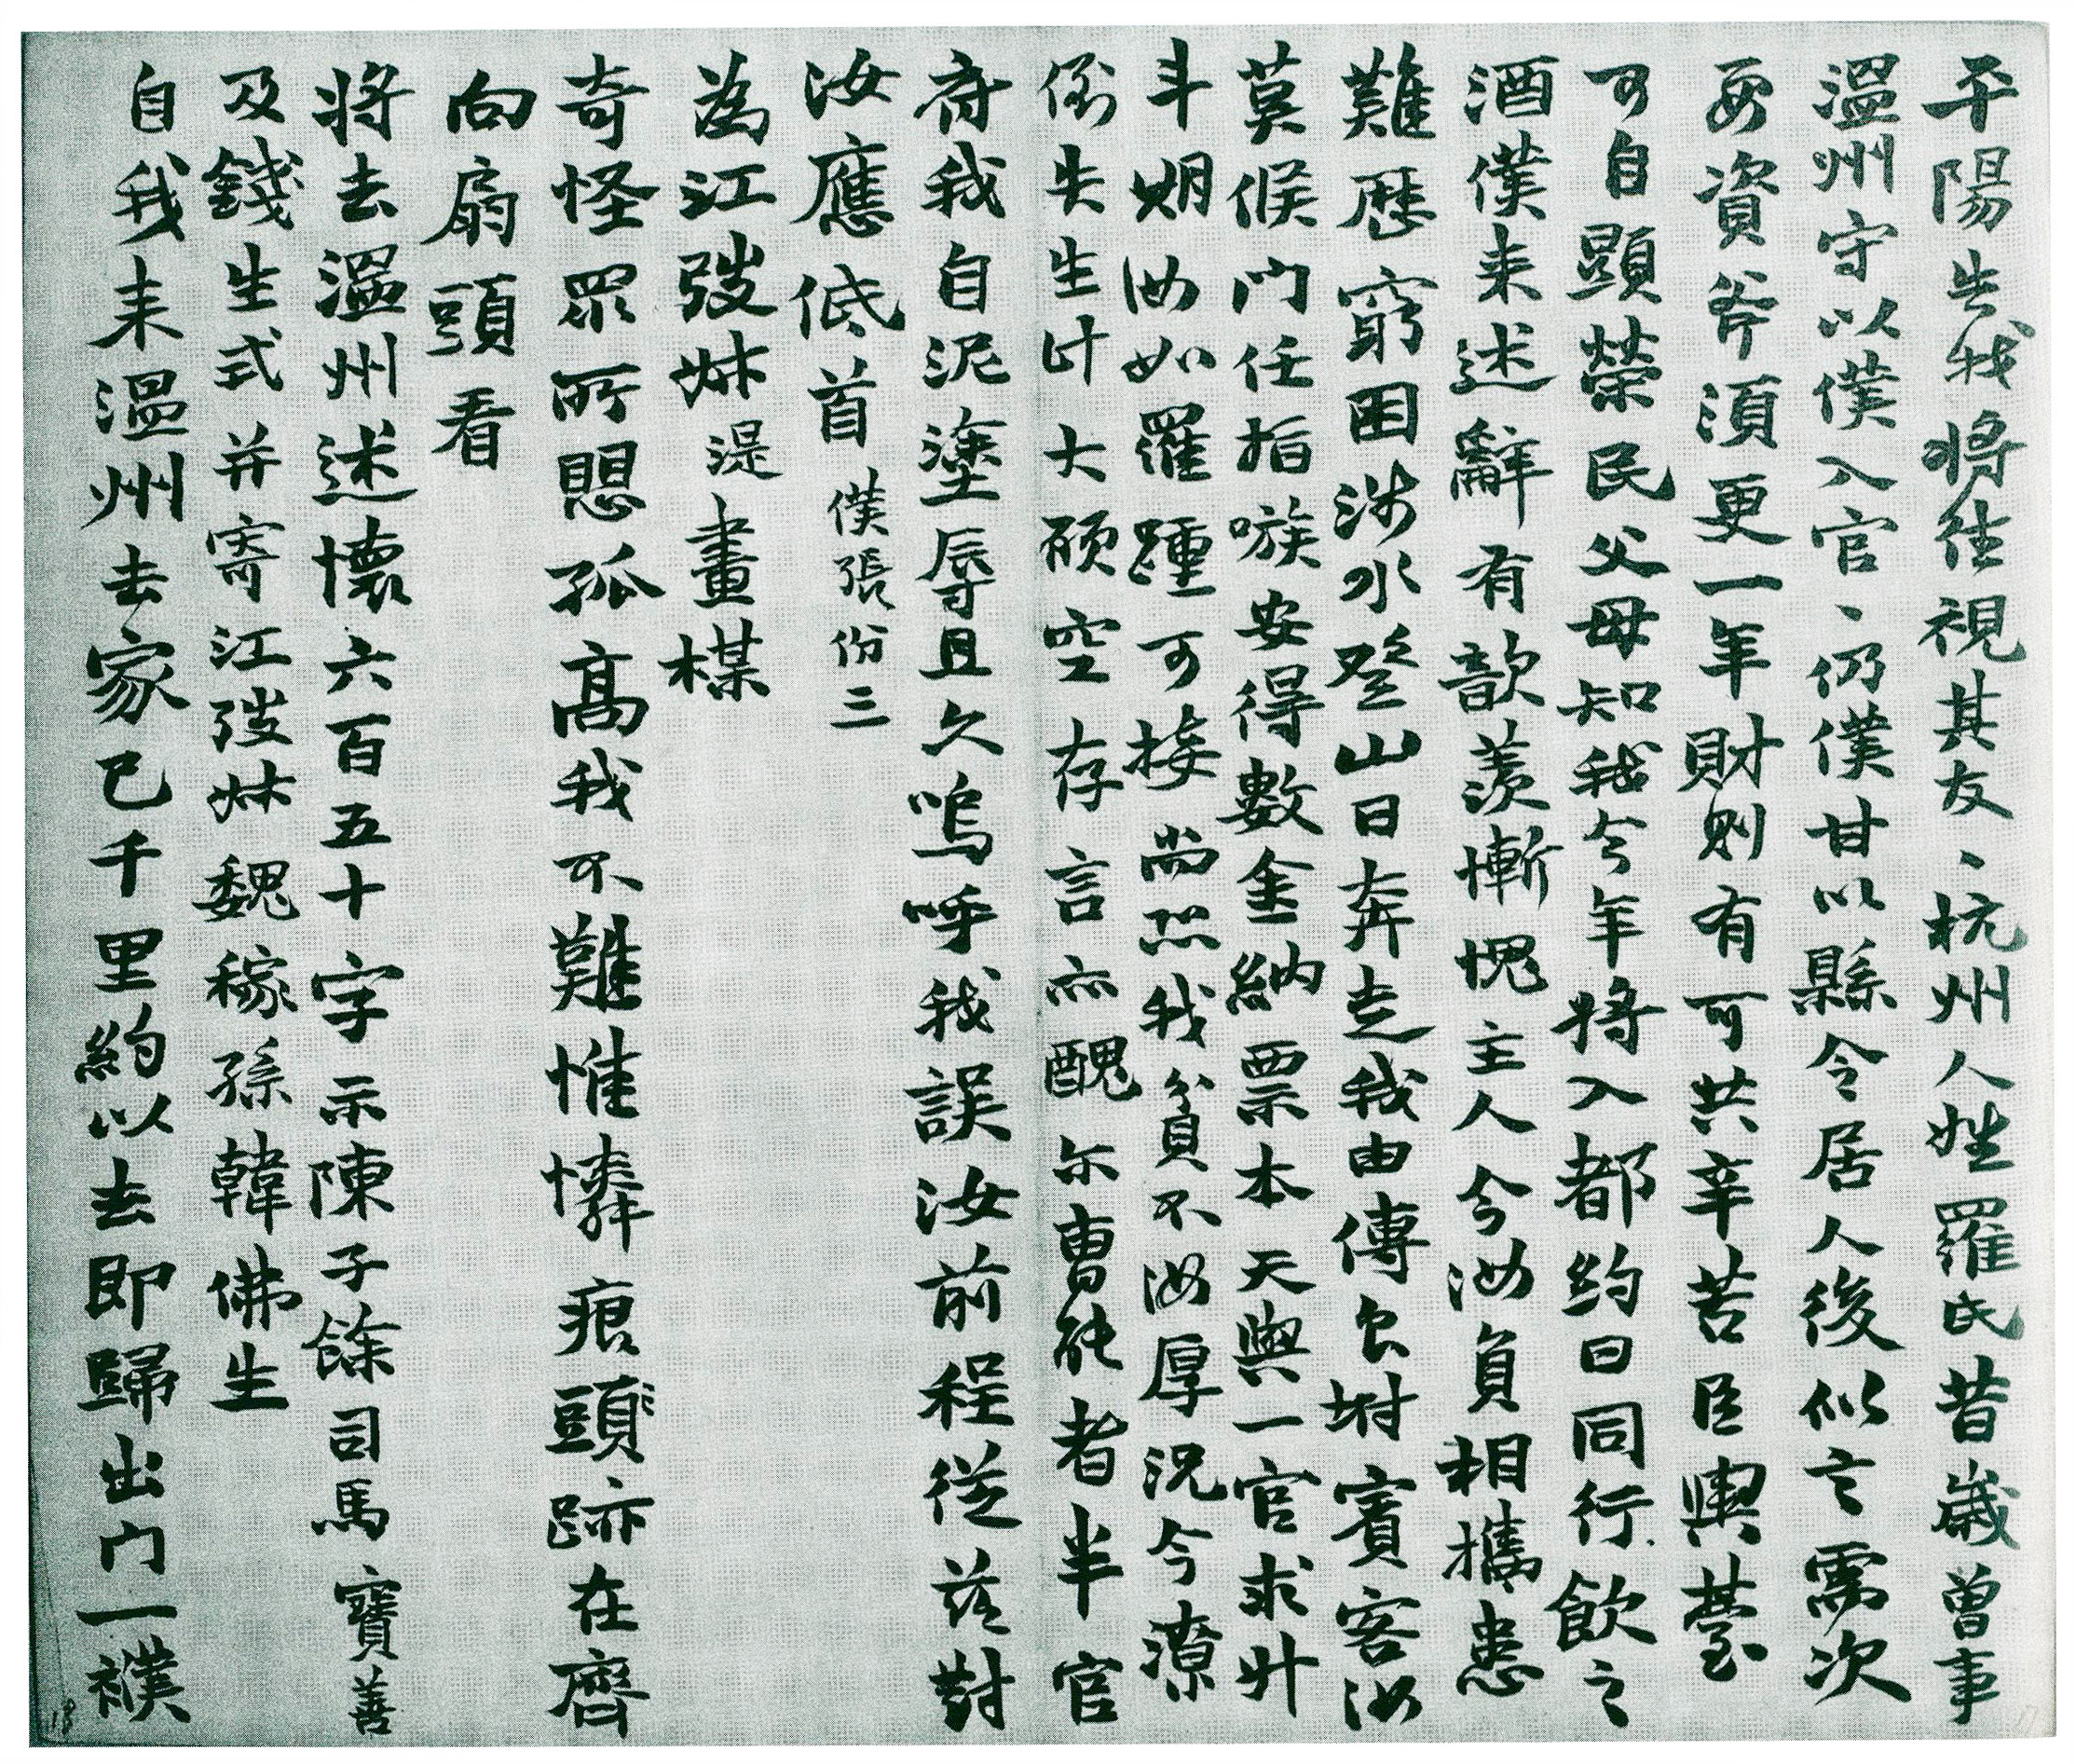 平陽告我將往視其友、杭州人姓羅氏昔歲曾事
溫州守以僕入官、仍僕甘以縣令居人後似言需次
要資斧須更一年財則有可共辛苦臣輿臺
可自顯榮民父母知我今年將入都約曰同行飲之
酒僕來述辭有歆羨慚愧主人今汝負相攜患
難歷窮困涉水登山日奔走我由傳食坿賓客汝
莫候門任指嗾安得數金納票本天與一官求升
斗炯汝如羅踵可接尚恐我貧不汝厚況今潦
倒失生計大碩空存言亦醜尓曹能者半官
府我自泥塗辱且久嗚呼我誤汝前程從茲對
汝應低首 僕張份三
為江弢叔湜畫楳
奇怪眾所思孤高我不難惟憐痕頭跡在齊
向扇頭看
將去溫州述懷六百五十字示陳子餘司馬寶善
及錢生式并寄江弢叔魏稼孫韓佛生
自我來溫州去家已千里約以去即歸出門一襆